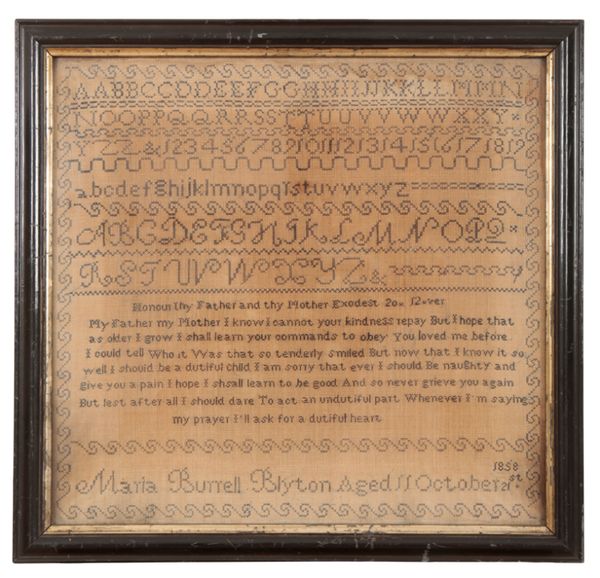 AABBCCDDEEFFGGHHIIJJKKLLMMN
NOOPPQQRRSSTTUUVVWWXXY
YZZ&12345678910111213141516171819
abcdefghijklmnopqrstuvwxyz
ABCDEFGHIJKLMNOPQ
RSTUVWXYZ&
Honour thy Father and thy Mother Exodest 20th 12 ver
My Father my Mother I know I cannot your kindness repay But I hope that
as older I grow I shall learn your commands to obey You loved me before
I could tell Who it Was that so tenderly smiled But now that I know it so
well I should be a dutiful child I am sorry that ever I should Be naughty and
give you a pain I hope I shsall learn to be good And so never grieve you again
But lest after all I should dare To act an undutiful part Whenever I'm saying
my prayer I'll ask for a dutiful heart
1858
Maria Burrell Blyton Aged 11 October 21st